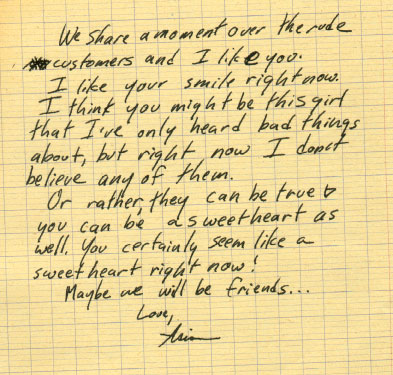 We share a moment over the rude
customers and I like you.
I like your smile right now.
I think you might be this girl
that I've only heard bad things
about, but right now I don't
believe any of them.
Or rather, they can be true &
you can be a sweetheart as
well. You certainly seem like a
sweetheart right now!
Maybe we will be friends...
Love,